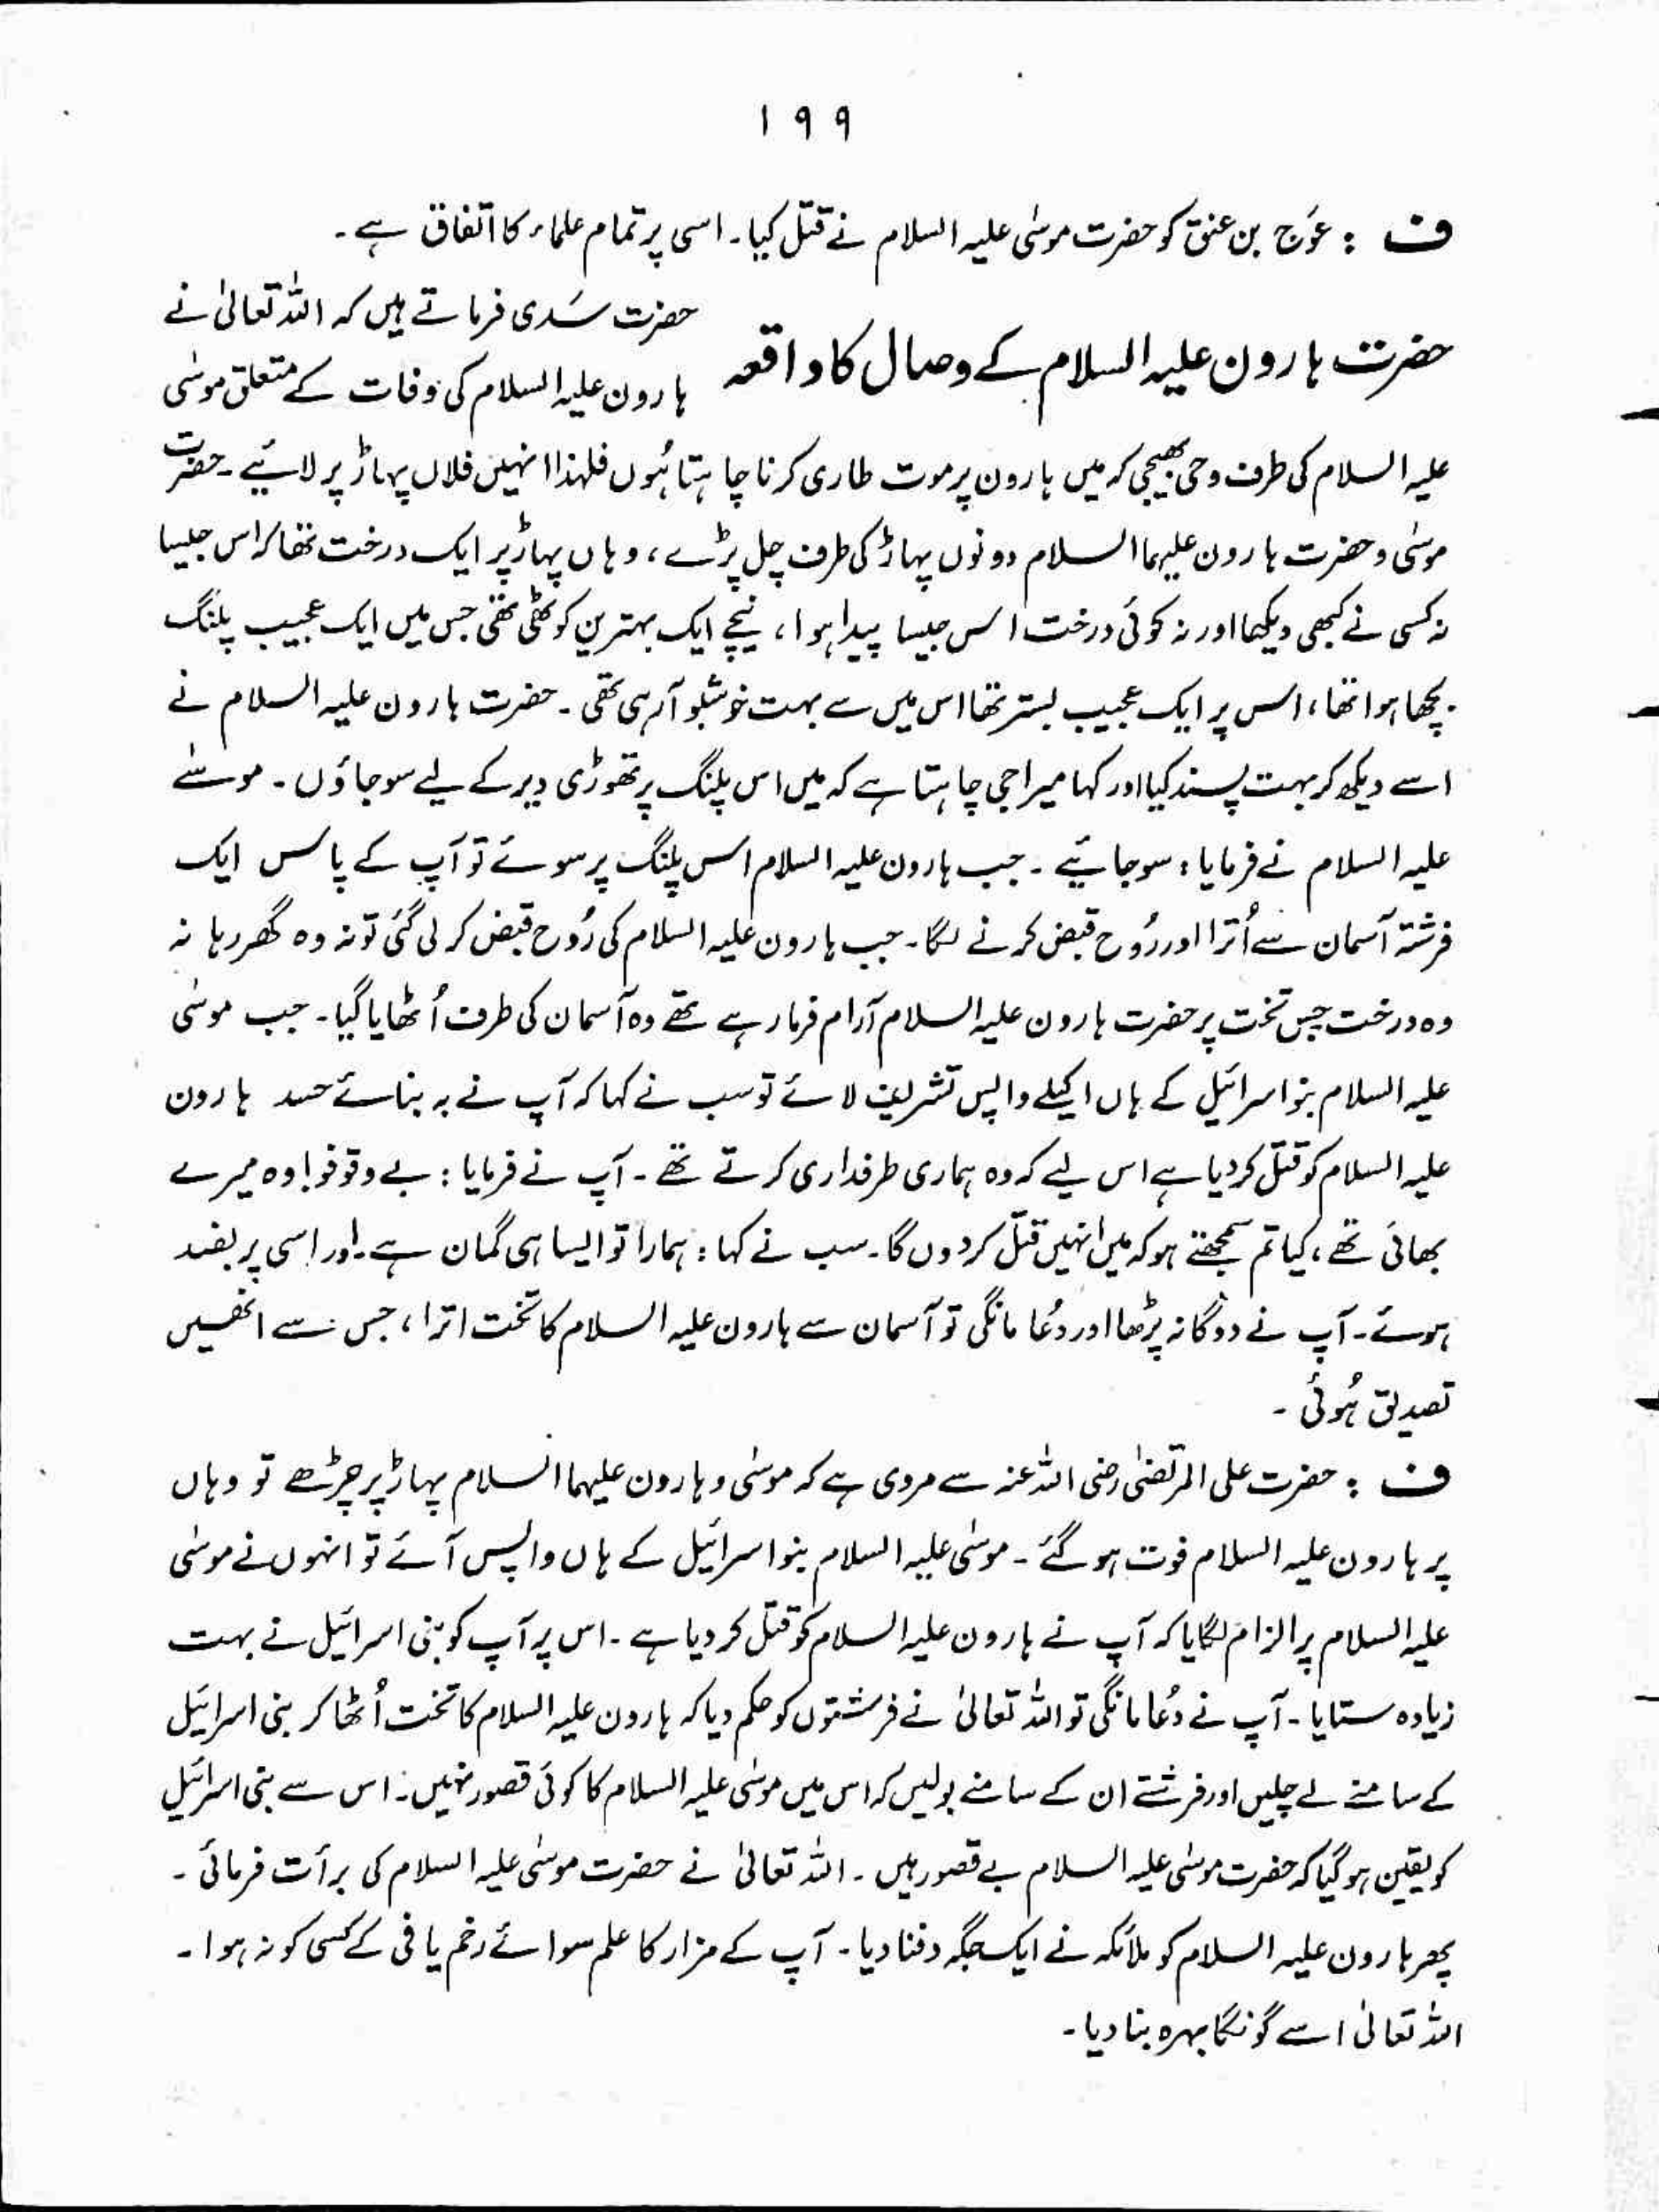 ۱۹۹
ف : عَوج بن عنق کو حضرت موسٰی علیہ السلام نے قتل کیا۔ اسی پر تمام علماء کا اتفاق ہے۔
حضرت ہارون علیہ السلام کے وصال کا واقعہ
حضرت سَدی فرماتے ہیں کہ اللہ تعالیٰ نے
ہارون علیہ السلام کی وفات کے متعلق موسٰی
علیہ السلام کی طرف وحی بھیجی کہ میں ہارون پر موت طاری کرنا چاہتا ہُوں فلہذا انہیں فلاں پہاڑ پر لائیے۔ حضرت
موسٰی و حضرت ہارون علیہما السلام دونوں پہاڑ کی طرف چل پڑے ، وہاں پہاڑ پر ایک درخت تھا کہ اس جیسا
نہ کسی نے کبھی دیکھا اور نہ کوئی درخت اس جیسا پیدا ہوا ، نیچے ایک بہترین کوٹھی تھی جس میں ایک عجیب پلنگ
بچھا ہوا تھا ، اس پر ایک عجیب بستر تھا اس میں سے بہت خوشبو آرہی تھی۔ حضرت ہارون علیہ السلام نے
اسے دیکھ کر بہت پسند کیا اور کہا میرا جی چاہتا ہے کہ میں اس پلنگ پر تھوڑی دیر کے لیے سو جاؤں۔ موسٰے
علیہ السلام نے فرمایا : سو جائیے۔ جب ہارون علیہ السلام اس پلنگ پر سوئے تو آپ کے پاس ایک
فرشتہ آسمان سے اُترا اور رُوح قبض کرنے لگا۔ جب ہارون علیہ السلام کی رُوح قبض کر لی گئی تو نہ وہ گھر رہا نہ
وہ درخت جس تخت پر حضرت ہارون علیہ السلام آرام فرما رہے تھے وہ آسمان کی طرف اُٹھایا گیا۔ جب موسٰی
علیہ السلام بنو اسرائیل کے ہاں اکیلے واپس تشریف لائے تو سب نے کہا کہ آپ نے بہ بنائے حسد ہارون
علیہ السلام کو قتل کر دیا ہے اس لیے کہ وہ ہماری طرفداری کرتے تھے۔ آپ نے فرمایا : بے وقوفو! وہ میرے
بھائی تھے ، کیا تم سمجھتے ہو کہ میں انہیں قتل کر دوں گا۔ سب نے کہا : ہمارا تو ایسا ہی گمان ہے۔ اور اسی پر بضد
ہوئے۔ آپ نے دوگانہ پڑھا اور دُعا مانگی تو آسمان سے ہارون علیہ السلام کا تخت اترا ، جس سے انھیں
تصدیق ہُوئی۔
ف : حضرت علی المرتضیٰ رضی اللہ عنہ سے مروی ہے کہ موسٰی و ہارون علیہما السلام پہاڑ پر چڑھے تو وہاں
پر ہارون علیہ السلام فوت ہو گئے۔ موسٰی علیہ السلام بنو اسرائیل کے ہاں واپس آئے تو انہوں نے موسٰی
علیہ السلام پر الزام لگایا کہ آپ نے ہارون علیہ السلام کو قتل کر دیا ہے۔ اس پر آپ کو بنی اسرائیل نے بہت
زیادہ ستایا۔ آپ نے دُعا مانگی تو اللہ تعالیٰ نے فرشتوں کو حکم دیا کہ ہارون علیہ السلام کا تخت اُٹھا کر بنی اسرائیل
کے سامنے لے چلیں اور فرشتے ان کے سامنے بولیں کہ اس میں موسٰی علیہ السلام کا کوئی قصور نہیں۔ اس سے بنی اسرائیل
کو یقین ہو گیا کہ حضرت موسٰی علیہ السلام بے قصور ہیں۔ اللہ تعالیٰ نے حضرت موسٰی علیہ السلام کی برأت فرمائی۔
پھر ہارون علیہ السلام کو ملائکہ نے ایک جگہ دفنا دیا۔ آپ کے مزار کا علم سوائے رخم یا فی کے کسی کو نہ ہوا۔
اللہ تعالیٰ اسے گونگا بہرہ بنا دیا۔